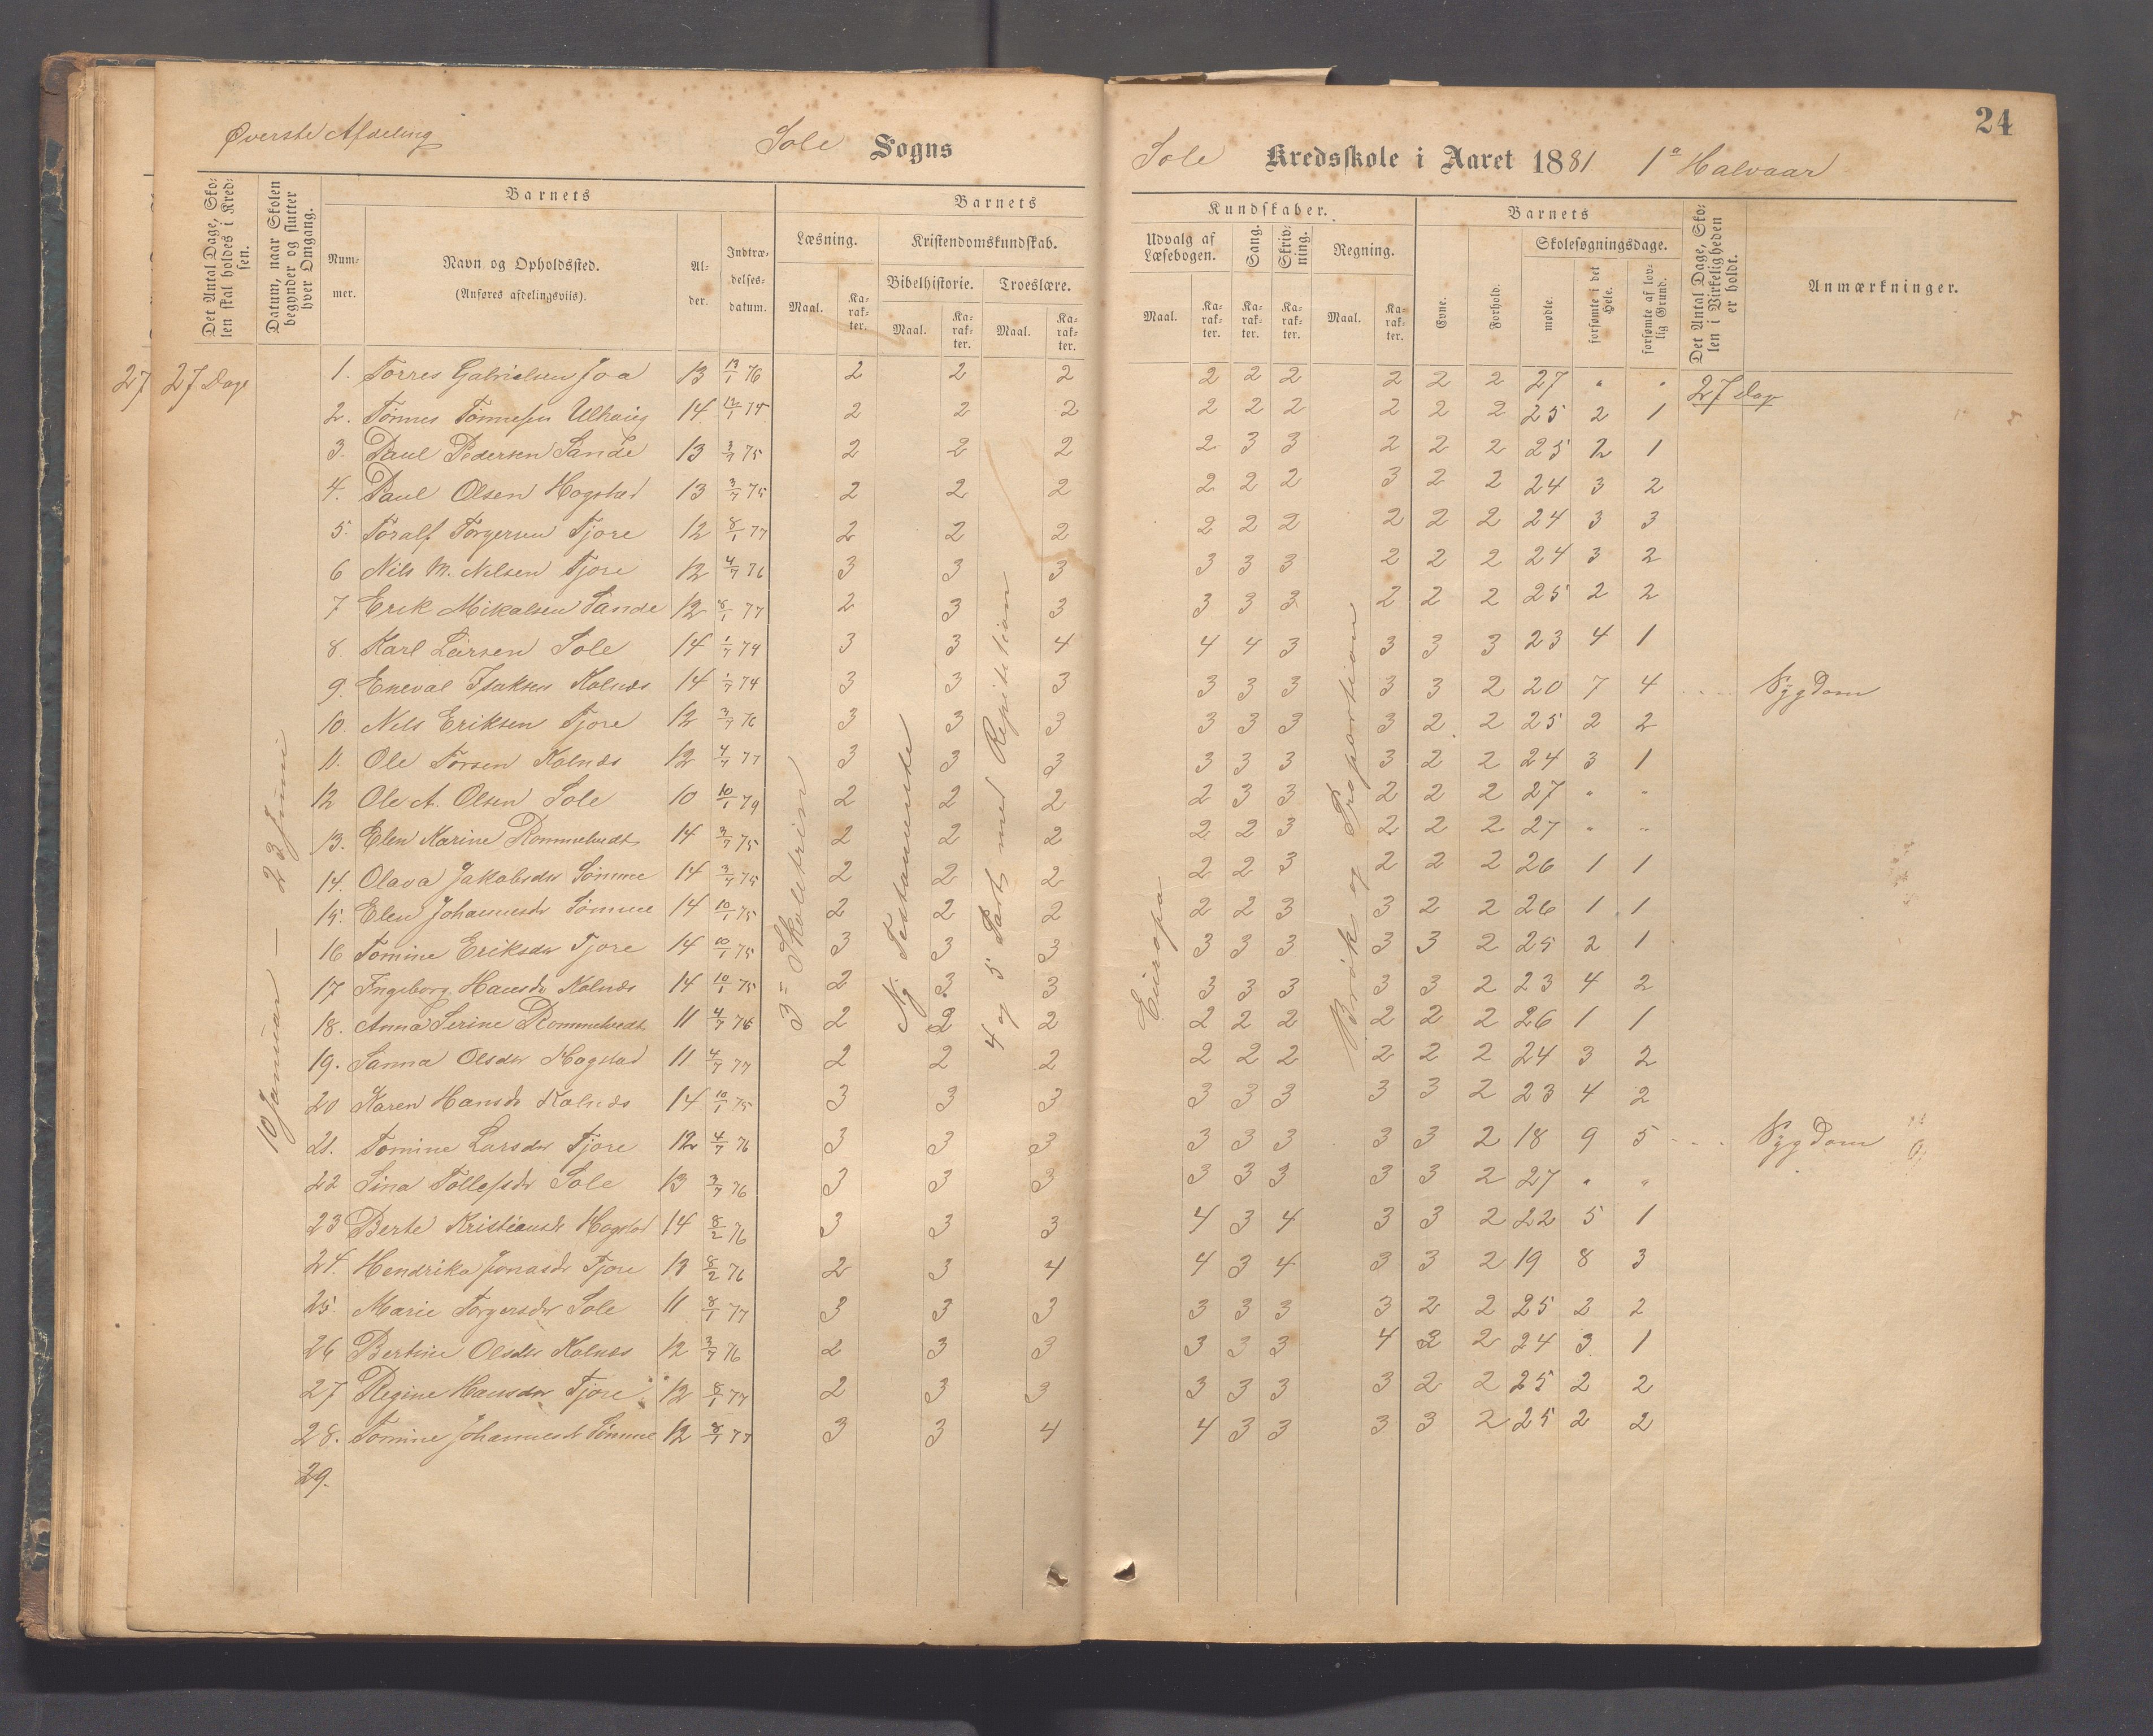 24
Øverste Afdeling Sole Sogns
Sole Kredsskole i Aaret 1881 1ª Halvaar
Det Antal Dage, Skolen skal holdes i Kredsen.
Datum, naar Skolen begynder og slutter hver Omgang.
Barnets
Nummer.
Navn og Opholdssted.
(Anføres afdelingsviis).
Alder.
Indtrædelsesdatum.
Barnets
Læsning.
Maal. Karakter.
Kristendomskundskab.
Bibelhistorie. Troeslære.
Maal. Karakter. Maal. Karakter.
Kundskaber.
Udvalg af Læsebogen.
Maal. Karakter.
Sang. Karakter.
Skrivning. Karakter.
Regning.
Maal. Karakter.
Barnets
Evne. Forhold.
Skolesøgningsdage.
mødte. forsømte i det Hele. forsømte af lovlig Grund.
Det Antal Dage, Skolen i Virkeligheden er holdt.
Anmærkninger.
27 27 Dage
10 Januar — 23 Juni
3 = Skoletrin
Ny Testamente
4 og 5 Part med Repitition
Europa
Brøk og Proportion
1. Torres Gabrielsen Joa 13 13/1 76 2 2 2 2 2 2 2 2 2 27 " " 27 Dage
2. Tønnes Tønnesen Ulhaug 14 12/1 74 2 2 2 2 2 2 2 2 2 25 2 1
3. Paul Pedersen Sande 13 3/7 75 2 2 2 2 3 3 2 2 2 25 2 1
4. Paul Olsen Hogstad 13 3/7 75 2 2 2 2 2 2 3 2 2 24 3 2
5. Toralf Torgersen Tjore 12 8/1 77 2 2 2 2 2 2 2 2 2 24 3 3
6 Nils M. Nilsen Tjore 12 4/7 76 3 3 3 3 3 3 2 2 2 24 3 2
7 Erik Mikalsen Sande 12 8/1 77 2 3 3 3 3 3 2 2 2 25 2 2
8. Karl Larsen Sole 14 1/7 74 3 3 4 4 4 3 3 3 3 23 4 1
9. Eneval Isaksen Kolnes 14 1/7 74 3 3 3 3 3 3 3 3 2 20 7 4 Sygdom
10. Nels Eriksen Tjore 12 3/7 76 3 3 3 3 3 3 3 2 2 25 2 2
11. Ole Torsen Kolnes 12 4/7 77 3 3 3 3 3 3 3 2 2 24 3 1
12 Ole A. Olsen Sole 10 10/1 79 2 2 2 2 3 3 2 2 2 27 " "
13. Elen Karine Rommetvedt 14 3/7 75 2 2 2 2 2 3 2 2 2 27 " "
14. Olava Jakobsdr Sømme 14 3/7 75 2 2 2 2 2 3 2 2 2 26 1 1
15. Elen Johannesdr Sømme 14 10/1 75 2 2 2 2 2 3 3 2 2 26 1 1
16 Tomine Eriksdr Tjore 14 10/1 75 3 3 3 3 3 3 3 3 2 25 2 1
17 Ingeborg Hansdr Kolnes 14 10/1 75 2 3 3 3 3 3 3 3 2 23 4 2
18. Anna Serine Rommetvedt 11 4/7 76 2 2 2 2 2 2 2 2 2 26 1 1
19. Sanna Olsdr Hogstad 11 4/7 77 2 2 2 2 2 2 2 2 2 24 3 2
20 Karen Hansdr Kolnes 14 10/1 75 3 3 3 3 3 3 3 3 2 23 4 2
21. Tomine Larsdr Tjore 12 4/7 76 3 3 3 3 3 3 3 3 2 18 9 5 Sygdom
22 Sina Tollefsdr Sole 13 3/7 76 3 3 3 3 3 3 3 3 2 27 " "
23 Berte Kristiansdr Hogstad 14 8/2 76 3 3 3 4 3 4 3 3 2 22 5 1
24. Hendrika Jonasdr Tjore 13 8/2 76 2 3 4 4 3 4 3 3 2 19 8 3
25. Marie Torgersdr Sole 11 8/1 77 3 3 3 3 3 3 3 2 2 25 2 2
26 Bertine Olsdr Kolnes 12 3/7 76 2 3 3 3 3 3 4 2 2 24 3 1
27 Regine Hansdr Tjore 12 8/1 77 2 3 3 3 3 3 3 2 2 25 2 2
28. Tomine Johannesdr Sømme 12 8/1 77 3 3 4 4 3 3 3 3 2 25 2 2
29.